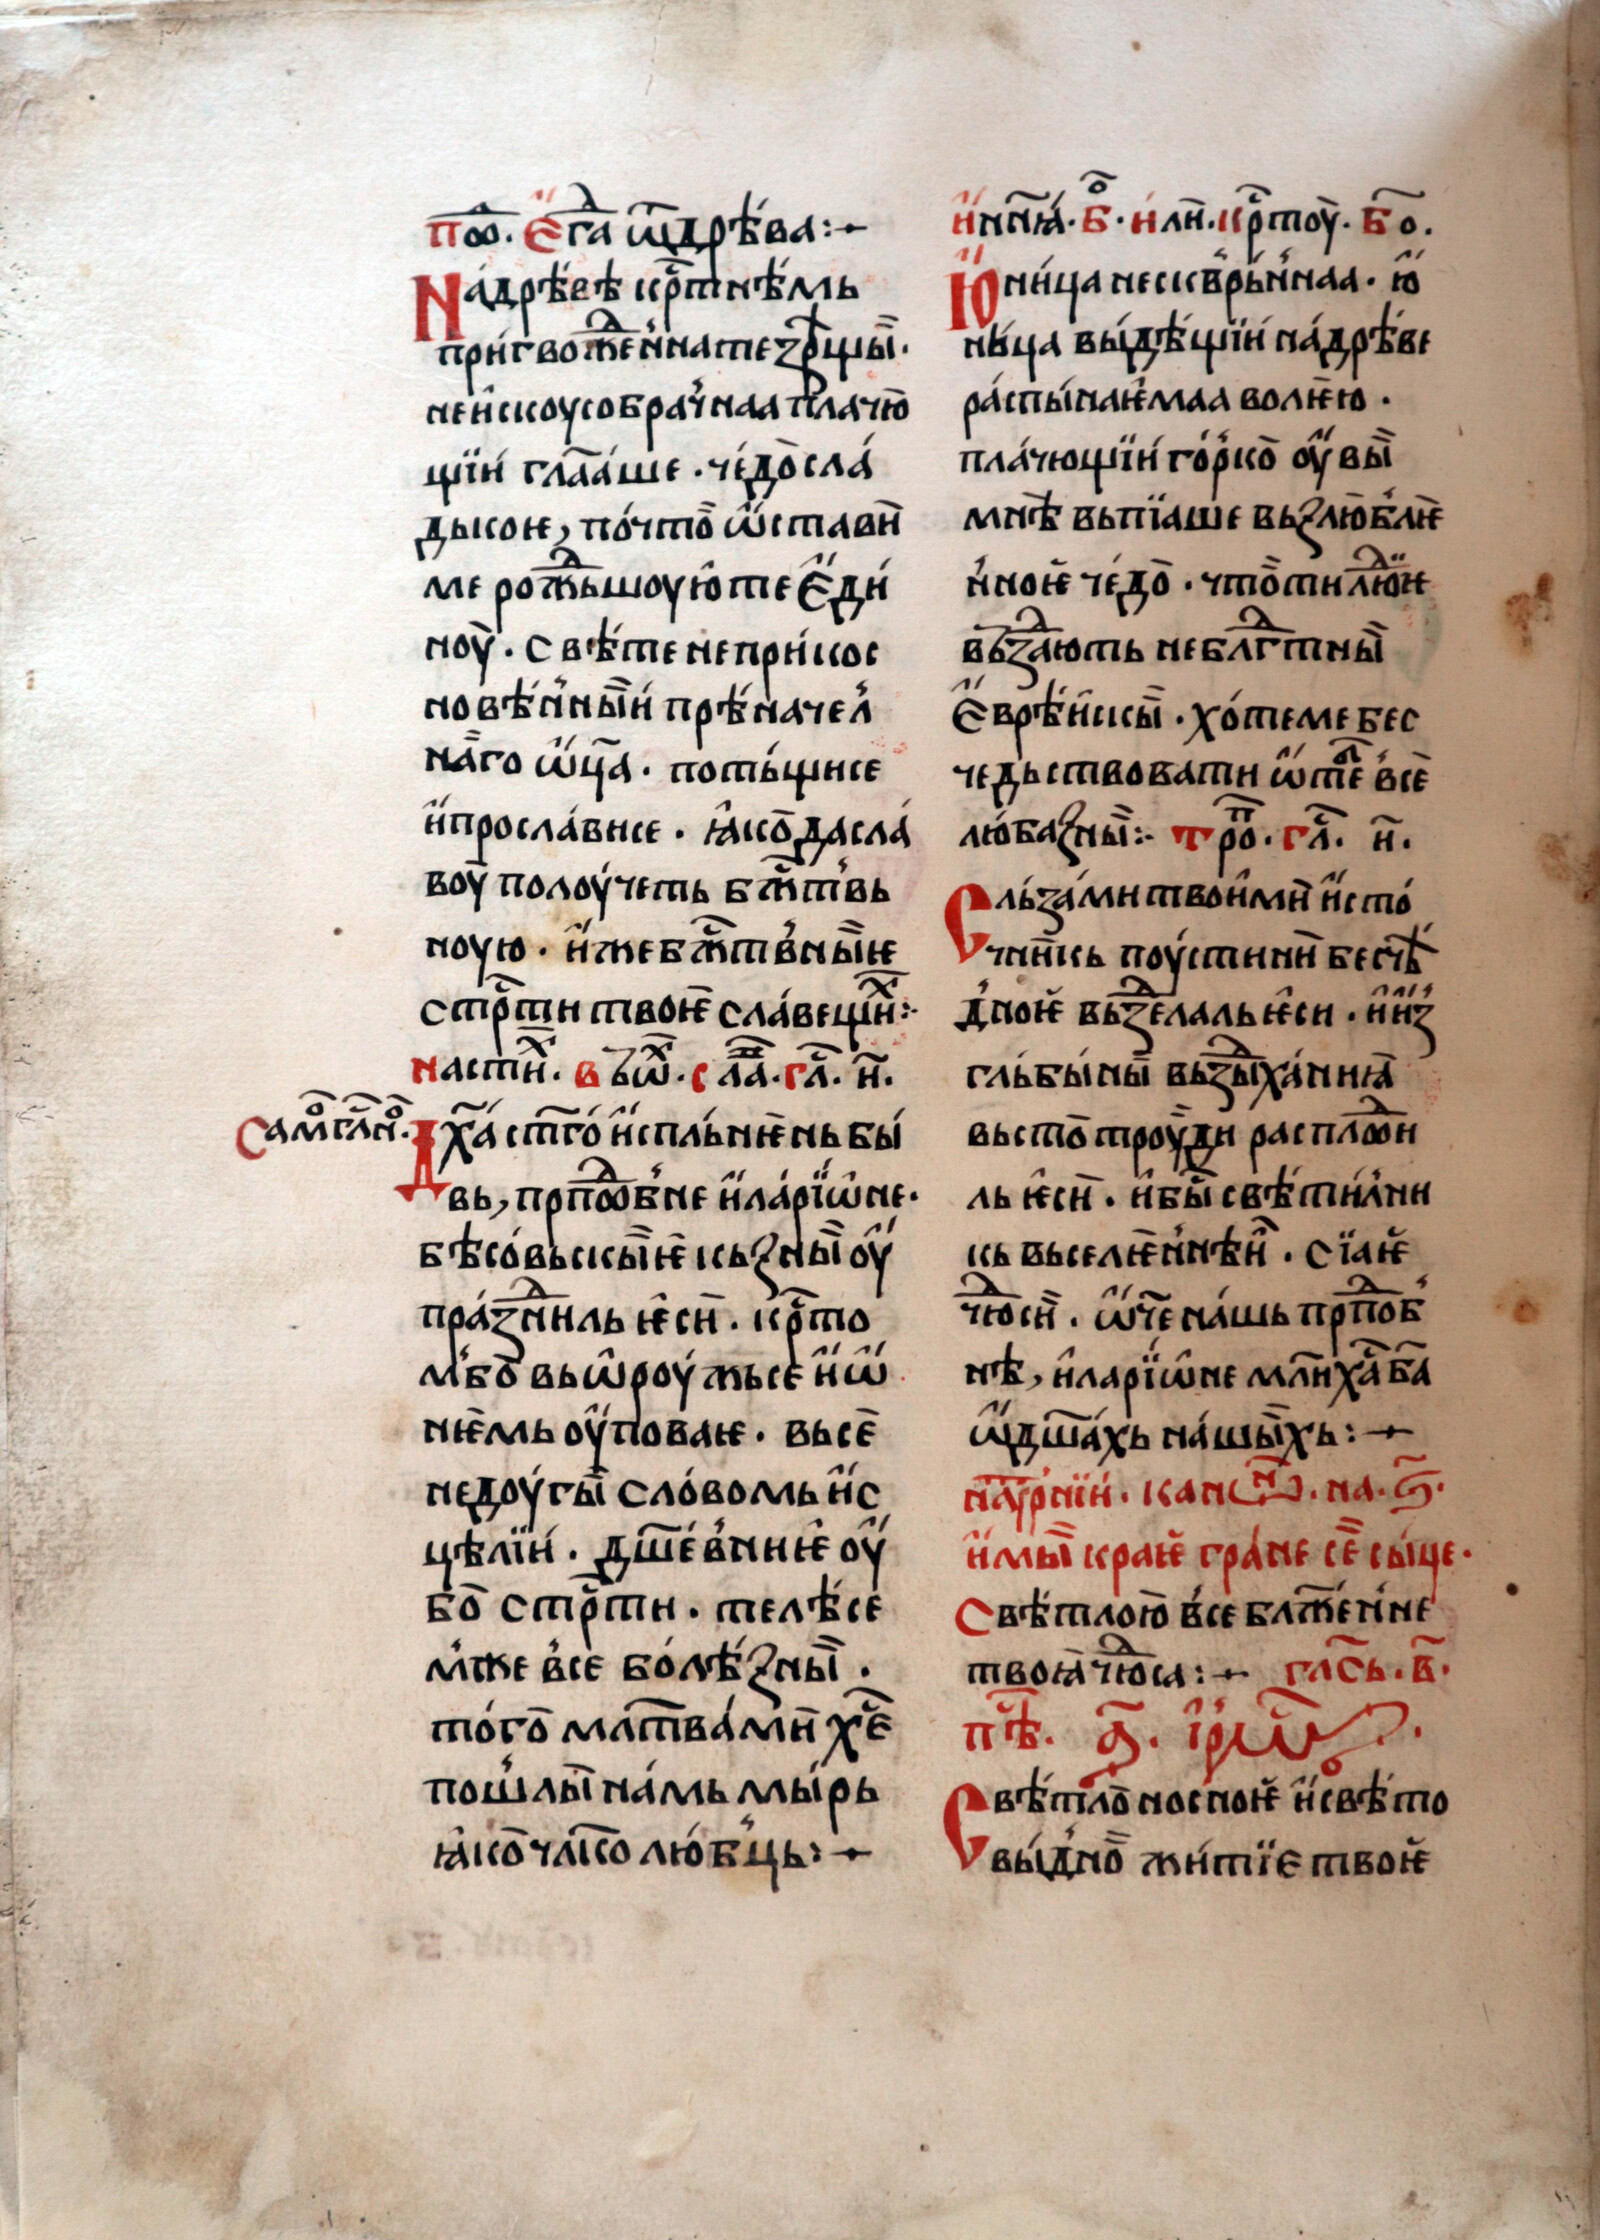 поⷣо. Є҆гⷣа ѿдрѣ́ва:~
На́дрѣвѣ крⷭ҇тнѣмь
при́гвожⷣенна те зрещы̀·
неи҆скоусобра́чнаа плачю̀
щїи́ гла́аше · че́дѡ сла́
дькоѥ, по́что̀ ѡ҆ставѝ
ме рожⷣьшоую҆ те Є҆ди́
ноу̀ · свѣ́те непри́кос
новѣ́нны́и прѣ́начел
на̀го ѡ҆ц҃а · поты́щисе
и҆просла́висе · ꙗ҆ко̀ дасла́
воу̀ полоу́четь бж҃тⷭ҇вь
ноую · и҆же бж҃тⷭ҇вны̀ѥ
стрⷭ҇ти твоѥ̀ сла́вещиⷯ:~
на стиⷯ. въꙁѡⷯ. сла́ⷡ. глⷭ҇. и҃.
Самоглⷭ҇но.
Дх҃а ст҃го и҆спль́нѥнь бы́
вь, прпⷣобне и҆ларїѡ҆не·
бѣсо́вьскы̀ѥ къꙁны̀ оу҆
пра́ꙁⷣниль ѥ҆сѝ · крⷭ҇то
м бо̀ вьѡ҆роу́жьсе и҆ѡ҆
нѥ̀мь оу҆поваѥ · вьсѐ
недоу́гы̀ сло́вомь и҆с
цѣлїи́ · дш҃е́вниѥ҆ оу҆
бо̀ стрⷭ҇ти · телѣ́се
мже все бо́лѣ́ꙁны̀ ·
то́го̀ млт҃ва́мѝ хⷭ҇е
пошлы̀ на́мь мы́рь
ꙗ҆ко̀ чл҃колю́бць:~
и҆нн҃ꙗ · бⷪ҇ · и҆лѝ · крⷭ҇тоу̀ · бо҃.
Ю҆ни́ца нескврь́ннаа · ю҆
ньца вы́дѣщїи на́дрѣве
ра́спынаѥ҆маа волѥ̀ю ·
пла́чющїи го́рко̀ оу҆вы̀
мнѣ̀ вьпїаше вьꙁлю̀блѥ̀
нноѥ че́дѡ · что̀ти лю́ⷣїѥ
въꙁⷣають неблⷢ҇тны̀
Є҆врѣ́и҆скы̀ · хо́теме бес
чедьствовати ѡ҆те́ⷠе всѐ
лю́баꙁны̀:~ троⷫ. глⷭ҇. и҃.
Сльꙁа́ми твои҆мѝ и҆сто́
чни҆кь поу́стинѝ бесчь́
дноѥ̀ вьꙁⷣелаль ѥ҆си · и҆и҆ꙁ
гльбы́ны̀ вьꙁⷣыха́ниꙗ̀
вьсто̀ троу́ди распло́ⷣи
ль ѥ҆сѝ · и҆бы̀ свѣти́лни
кь вьселѥ̀ннѣи · сїаѥ̀
чюⷣсѝ · ѡ҆ч҃е на́шь прпⷣоб
нѣ, и҆ларїѡ҆не млѝ хⷭ҇а ба҃
ѿдш҃ахь на́шы̀хь:~
на оу҆трънїи. кано́нь. на. ѕ҃.
и҆мы̀ краѥ̀ гра́не сѐ сы́це.
Свѣ́тлою̀ все блаже́нне
твоꙗ̀ чюⷣса:~ гла́сь. в҃.
пѣⷭ҇. а҃. і҆рмѡⷭ҇.
Свѣ́тло̀ носноѥ̀ и҆свѣ́то
вы́дно̀ жи́тїє твоѥ̀